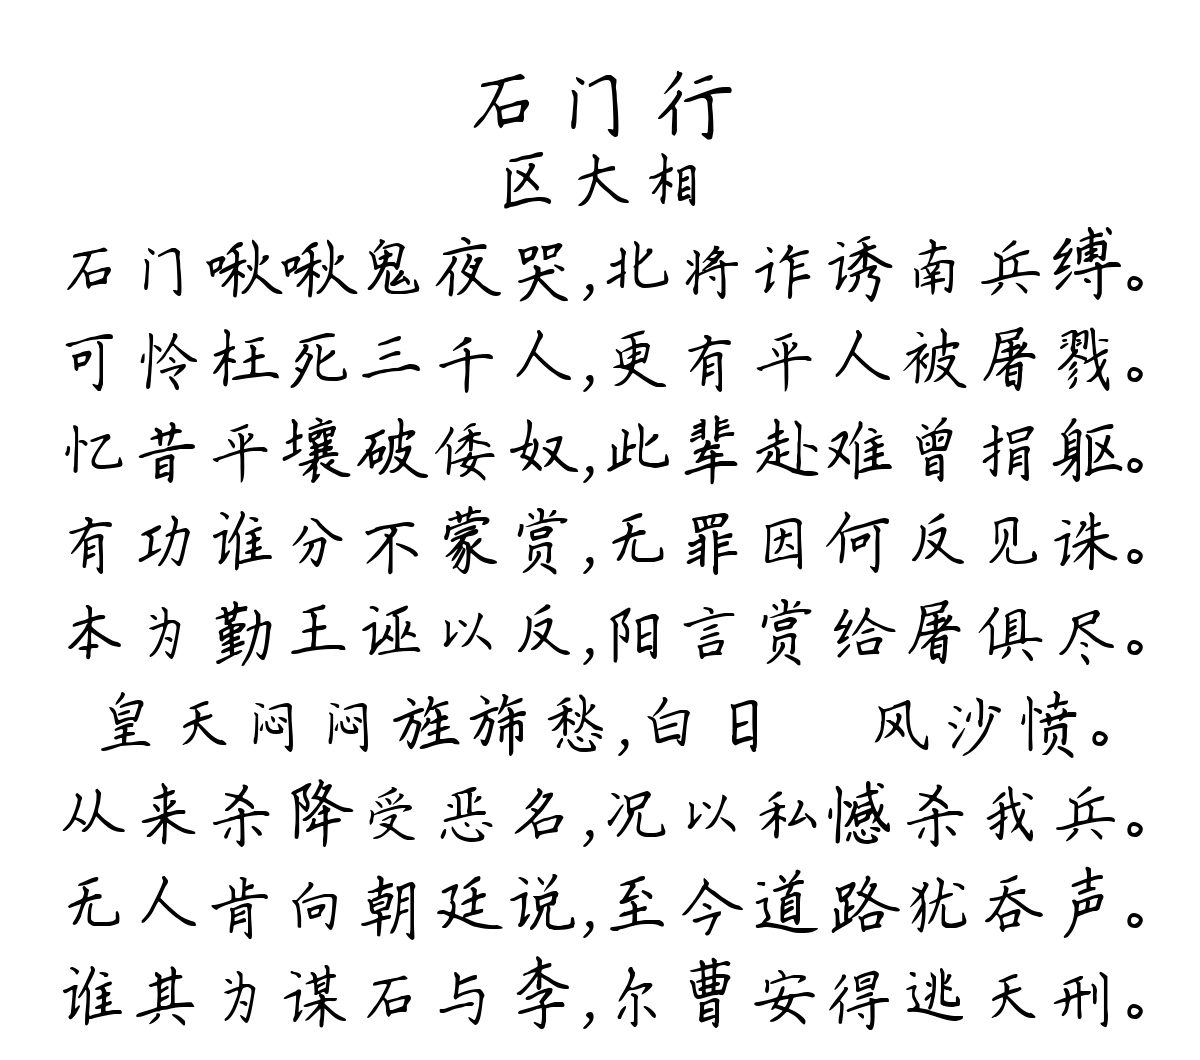 石门行
区大相
石门啾啾鬼夜哭,北将诈诱南兵缚。
可怜枉死三千人,更有平人被屠戮。
忆昔平壤破倭奴,此辈赴难曾捐躯。
有功谁分不蒙赏,无罪因何反见诛。
本为勤王诬以反,阳言赏给屠俱尽。
皇天闷闷旌旆愁,白日 风沙愤。
从来杀降受恶名,况以私憾杀我兵。
无人肯向朝廷说,至今道路犹吞声。
谁其为谋石与李,尔曹安得逃天刑。